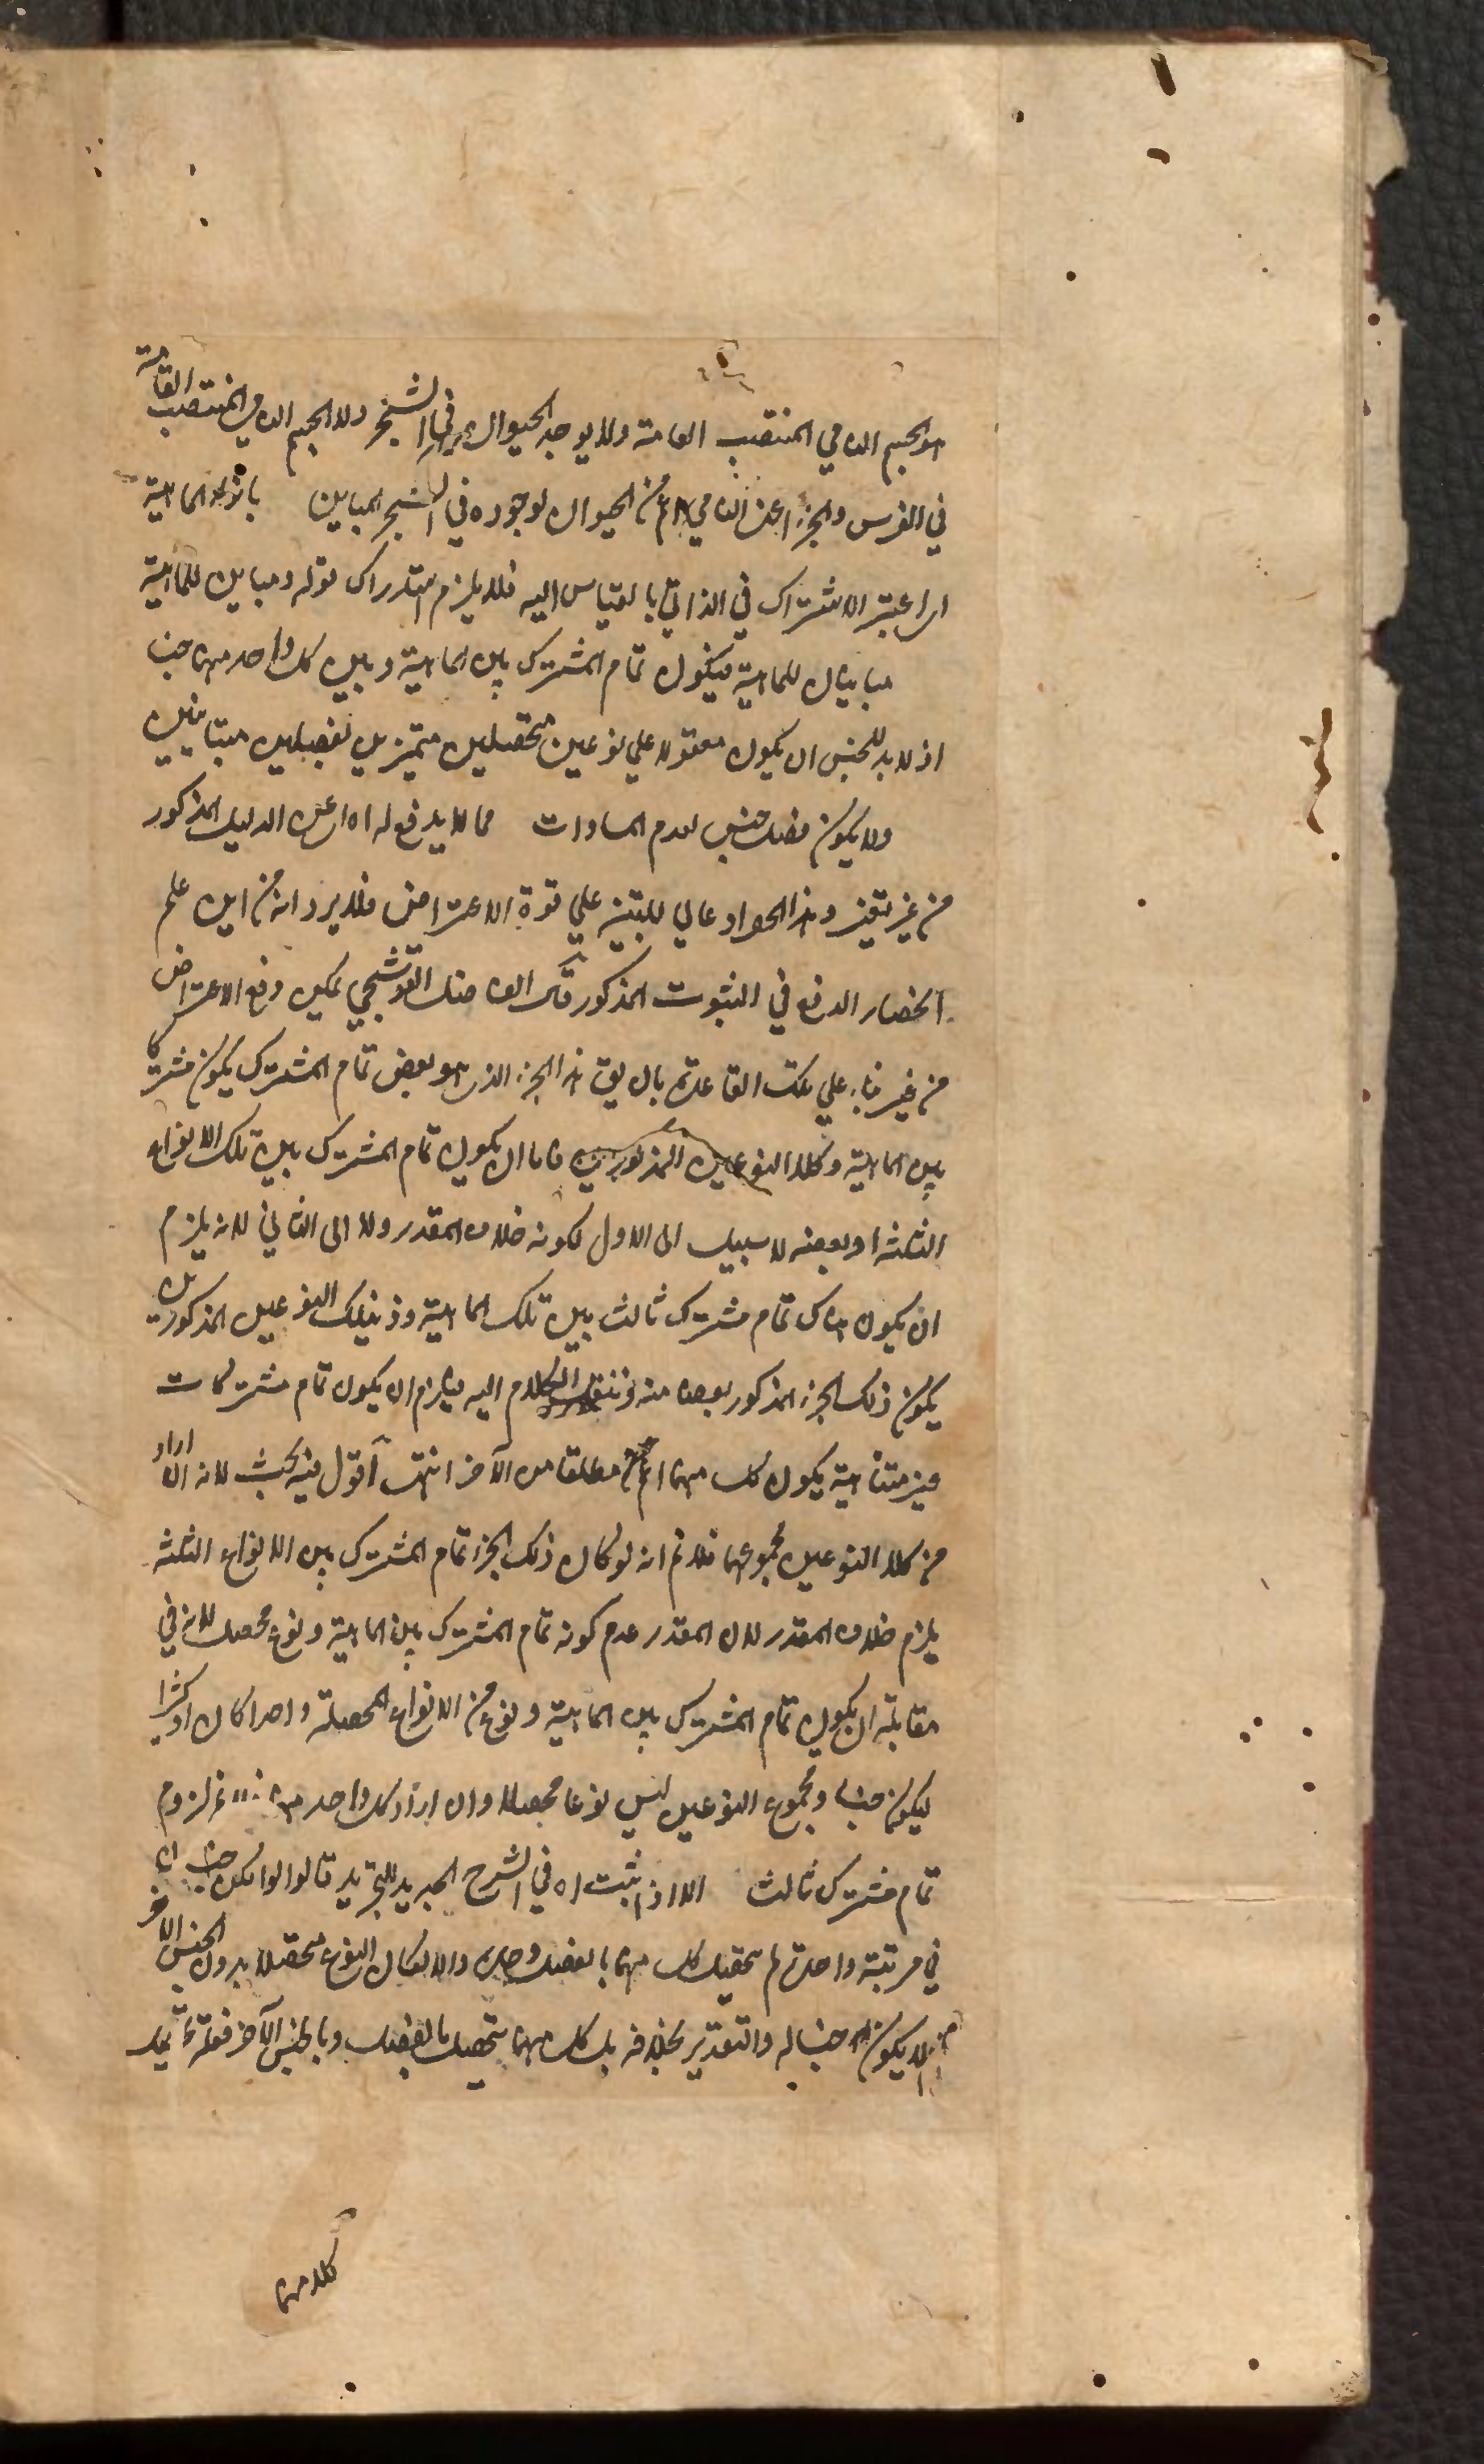 هو الجسم النامي المنتصب القامة ولا يوجد الحيوان في الشجر ولا الجسم النامي المنتصب القامة
في الفرس والجزء اعنى النامي اعم من الحيوان لوجوده في الشجر المباين بانواع الماهية
اى اعتبر الاشتراك في الذاتي بالقياس اليه فلا يلزم استدراك قوله ومباين للماهية
مباينان للماهية فيكون تمام المشترك بين الماهية وبين كل واحد منهما جنسا
اذ لا بد للجنس ان يكون مقولا علي نوعين متحصلين متميزين بفصلين متباينين
ولا يكون فصل جنس لعدم المساوات مما لا يدفع له اه اى عن الدليل المذكور
من غير تغير وهذا الجواد عالي للتبيين علي قوة الاعتراض فلا يرد انه من اين علم
انحصار الدفع في الثبوت المذكور قال الفاضل القوشجي يمكن دفع الاعتراض
من غير بناء علي تلك القاعدة بان يق هذا الجزء الذي هو بعض تمام المشترك يكون مشتركا
بين الماهية وكلا النوعين المذكورين فاما ان يكون تمام المشترك بين تلك الانواع
الثلثة او بعضه لا سبيل الى الاول لكونه خلاف المقدر ولا الى الثاني لانه يلزم
ان يكون هناك تمام مشترك ثالث بين تلك الماهية وذينك النوعين المذكورين
يكون ذلك الجزء المذكور بعضا منه وننقل الكلام اليه فيلزم ان يكون تمام مشتركات
غير متناهية يكون كل منهما اعم مطلقا من الآخر انتهى اقول فيه بحث لانه ان اراد
من كلا النوعين مجموعهما فلا نم انه لو كان ذلك الجزء تمام المشترك بين الانواع الثلثة
يلزم خلاف المقدر لان المقدر عدم كونه تمام المشترك بين الماهية ونوع محصل لانه في
مقابلة ان يكون تمام المشترك بين الماهية ونوع من الانواع المحصلة واحدا كان او كثيرا
ليكون جنسا ومجموع النوعين ليس نوعا محصلا وان اراد كل واحد منهما لزوم
تمام مشترك ثالث الا اذا ثبت اه في الشرح الجديد للتجريد قالوا لو امكن جنسان
في مرتبة واحدة لم يتحصل كل منهما بالفصل وحده والا لكان النوع متحصلا بدون الجنس الآخر
فلا يكون جنسا له والتقدير بخلافه بل كل منهما يتحصل بالفصل وبالجنس الآخر فعلة تحصل
كلا منهما